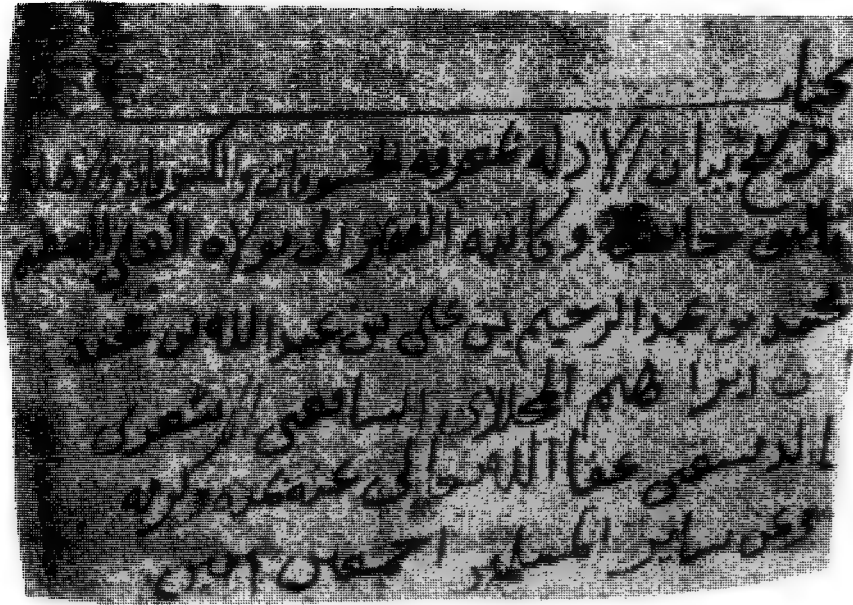 كتاب
توضيح بيان الادلة لمعرفة الخسوفات والكسوفات والاهلة
تاليف وكاتبه الفقير الى مولاه العلي العظيم
محمد بن عبد الرحيم بن علي بن عبد الله بن محمد
بن ابراهيم الشافعي الاشعري
الدمشقي عفا الله تعالى عنه بمنه وكرمه
وعن ساير المسلمين اجمعين امين